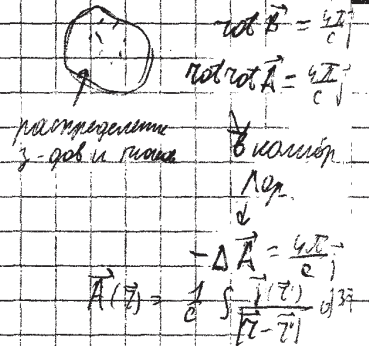 rot B⃗ = 4π/c j⃗
rot rot A⃗ = 4π/c j⃗
распределение
з-дов и токов
в калибр
Лор.
-Δ A⃗ = 4π/c j⃗
A⃗(r⃗) = 1/c ∫ j⃗(r⃗')/|r⃗-r⃗'| d³r